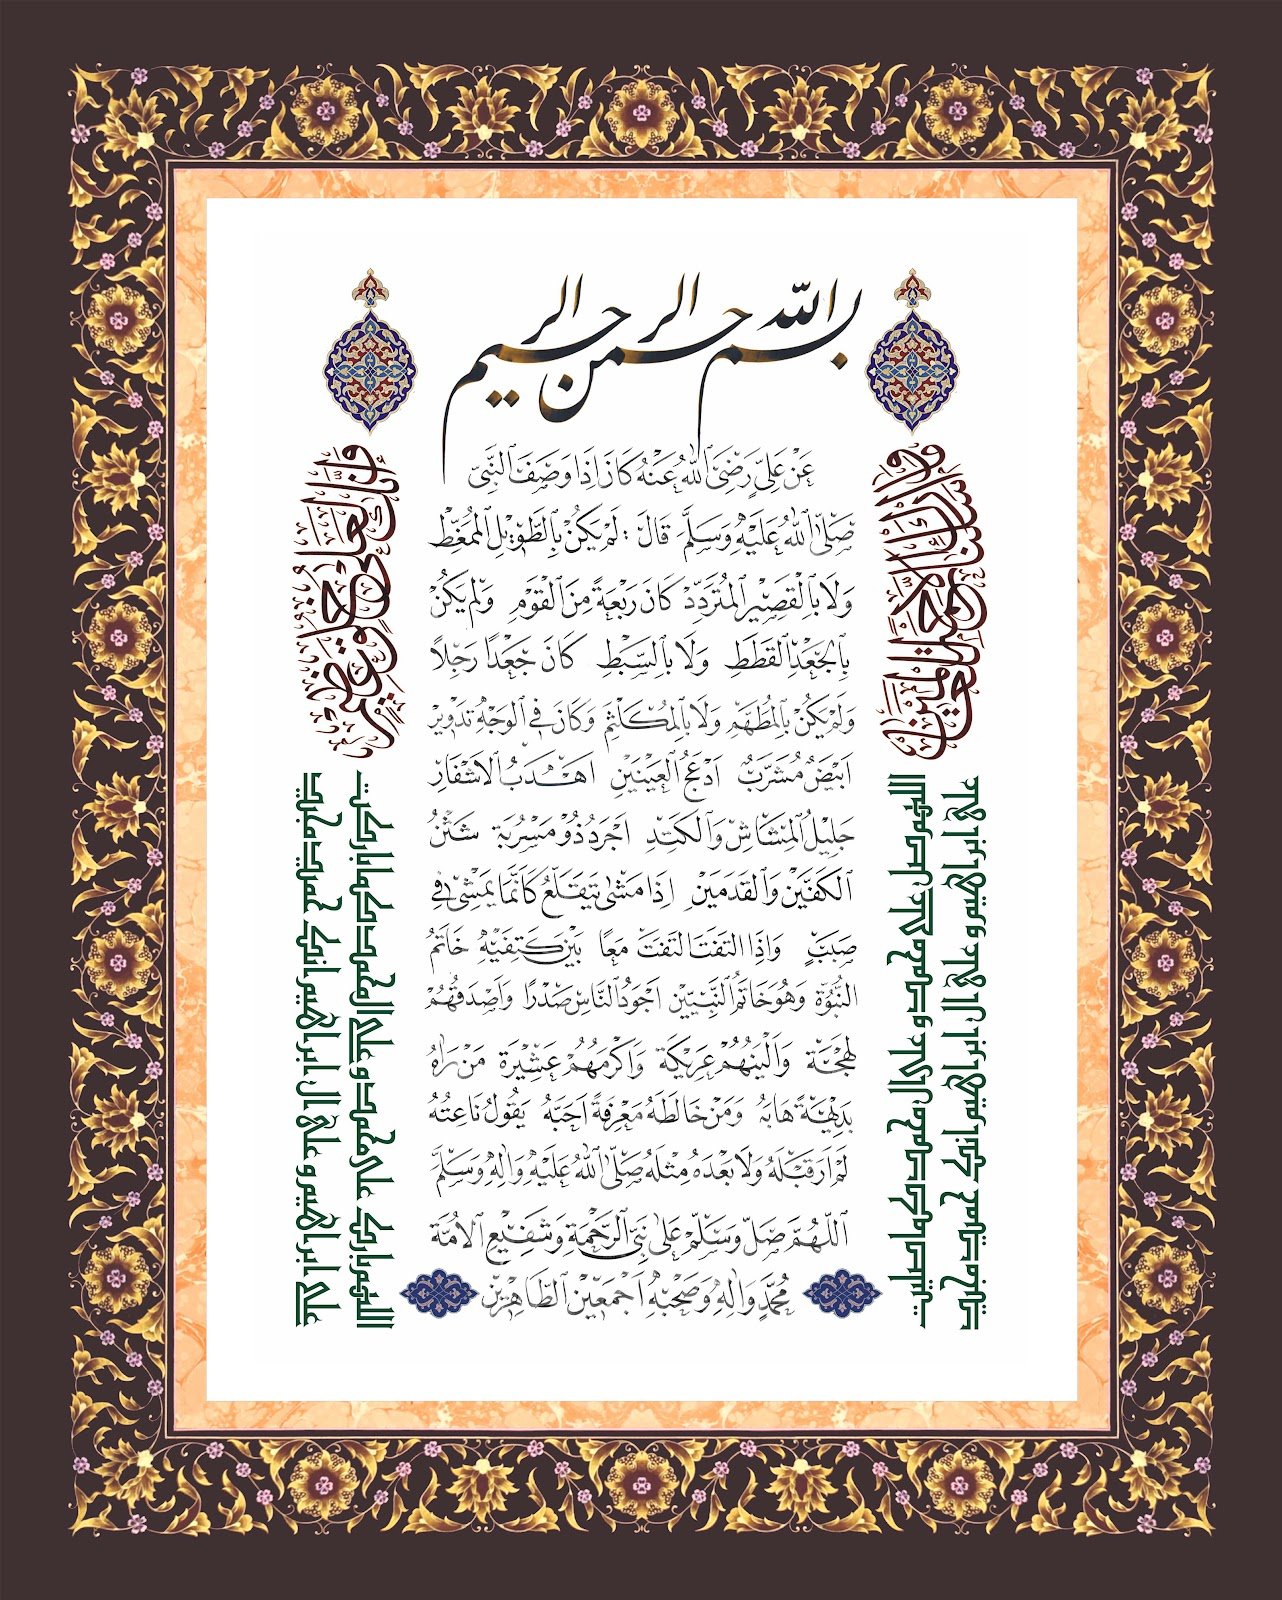 بسم الله الرحمن الرحيم
عَنْ عَلِيٍّ رَضِيَ اللهُ عَنْهُ كَانَ اِذَا وَصَفَ النَّبِيَّ
صَلَّى اللهُ عَلَيْهِ وَسَلَّمَ قَالَ : لَمْ يَكُنْ بِالطَّوِيْلِ الْمُمَغَّطِ
وَلَا بِالْقَصِيْرِ الْمُتَرَدِّدِ كَانَ رَبْعَةً مِنَ الْقَوْمِ وَلَمْ يَكُنْ
بِالْجَعْدِ الْقَطَطِ وَلَا بِالسَّبْطِ كَانَ جَعْدًا رَجِلًا
وَلَمْ يَكُنْ بِالْمُطَهَّمِ وَلَا بِالْمُكَلْثَمِ وَكَانَ فِي الْوَجْهِ تَدْوِيْر
اَبْيَضُ مُشَرَّبٌ اَدْعَجُ الْعَيْنَيْنِ اَهْدَبُ الْاَشْفَارِ
جَلِيْلُ الْمُشَاشِ وَالْكَتَدِ اَجْرَدُ ذُوْ مَسْرُبَةٍ شَثْنُ
الْكَفَّيْنِ وَالْقَدَمَيْنِ اِذَا مَشٰى تَقَلَّعَ كَاَنَّمَا يَمْشِيْ فِي
صَبَبٍ وَاِذَا الْتَفَتَ الْتَفَتَ مَعًا بَيْنَ كَتِفَيْهِ خَاتَمُ
النُّبُوَّةِ وَهُوَ خَاتَمُ النَّبِيِّيْنَ اَجْوَدُ النَّاسِ صَدْرًا وَاَصْدَقُهُمْ
لَهْجَةً وَاَلْيَنُهُمْ عَرِيْكَةً وَاَكْرَمُهُمْ عَشِيْرَةً مَنْ رَاٰهُ
بَدِيْهَةً هَابَهُ وَمَنْ خَالَطَهُ مَعْرِفَةً اَحَبَّهُ يَقُوْلُ نَاعِتُهُ
لَمْ اَرَ قَبْلَهُ وَلَا بَعْدَهُ مِثْلَهُ صَلَّى اللهُ عَلَيْهِ وَاٰلِهِ وَسَلَّمَ
اَللّٰهُمَّ صَلِّ وَسَلِّمْ عَلٰى نَبِيِّ الرَّحْمَةِ وَشَفِيْعِ الْاُمَّةِ
مُحَمَّدٍ وَاٰلِهِ وَصَحْبِهِ اَجْمَعِيْنَ الطَّاهِرِيْنَ
وَمَا أَرْسَلْنَاكَ إِلَّا رَحْمَةً لِلْعَالَمِينَ
وَإِنَّكَ لَعَلَى خُلُقٍ عَظِيمٍ
اللهم صل على محمد و على ال محمد كما صليت
على ابراهيم و على ال ابراهيم انك حميد مجيد
اللهم بارك على محمد و على ال محمد كما باركت
على ابراهيم و على ال ابراهيم انك حميد مجيد